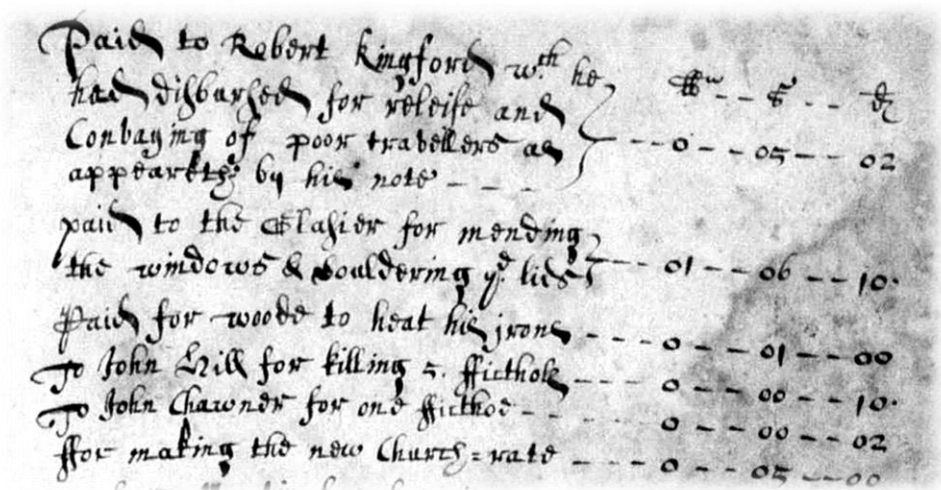 Paid to Robert Kingford wch he
had disbursed for releife and li s d
Convaying of poor travellers as 0 05 02
appeareth by his note
paid to the Glasier for mending
the windows & souldering ye lids 01 06 10
Paid for woode to heat his irons 0 01 00
To John Hill for killing 5 ffitholes 0 00 10
To John Chawner for one ffithoe 0 00 02
ffor making the new Church=rate 0 05 00